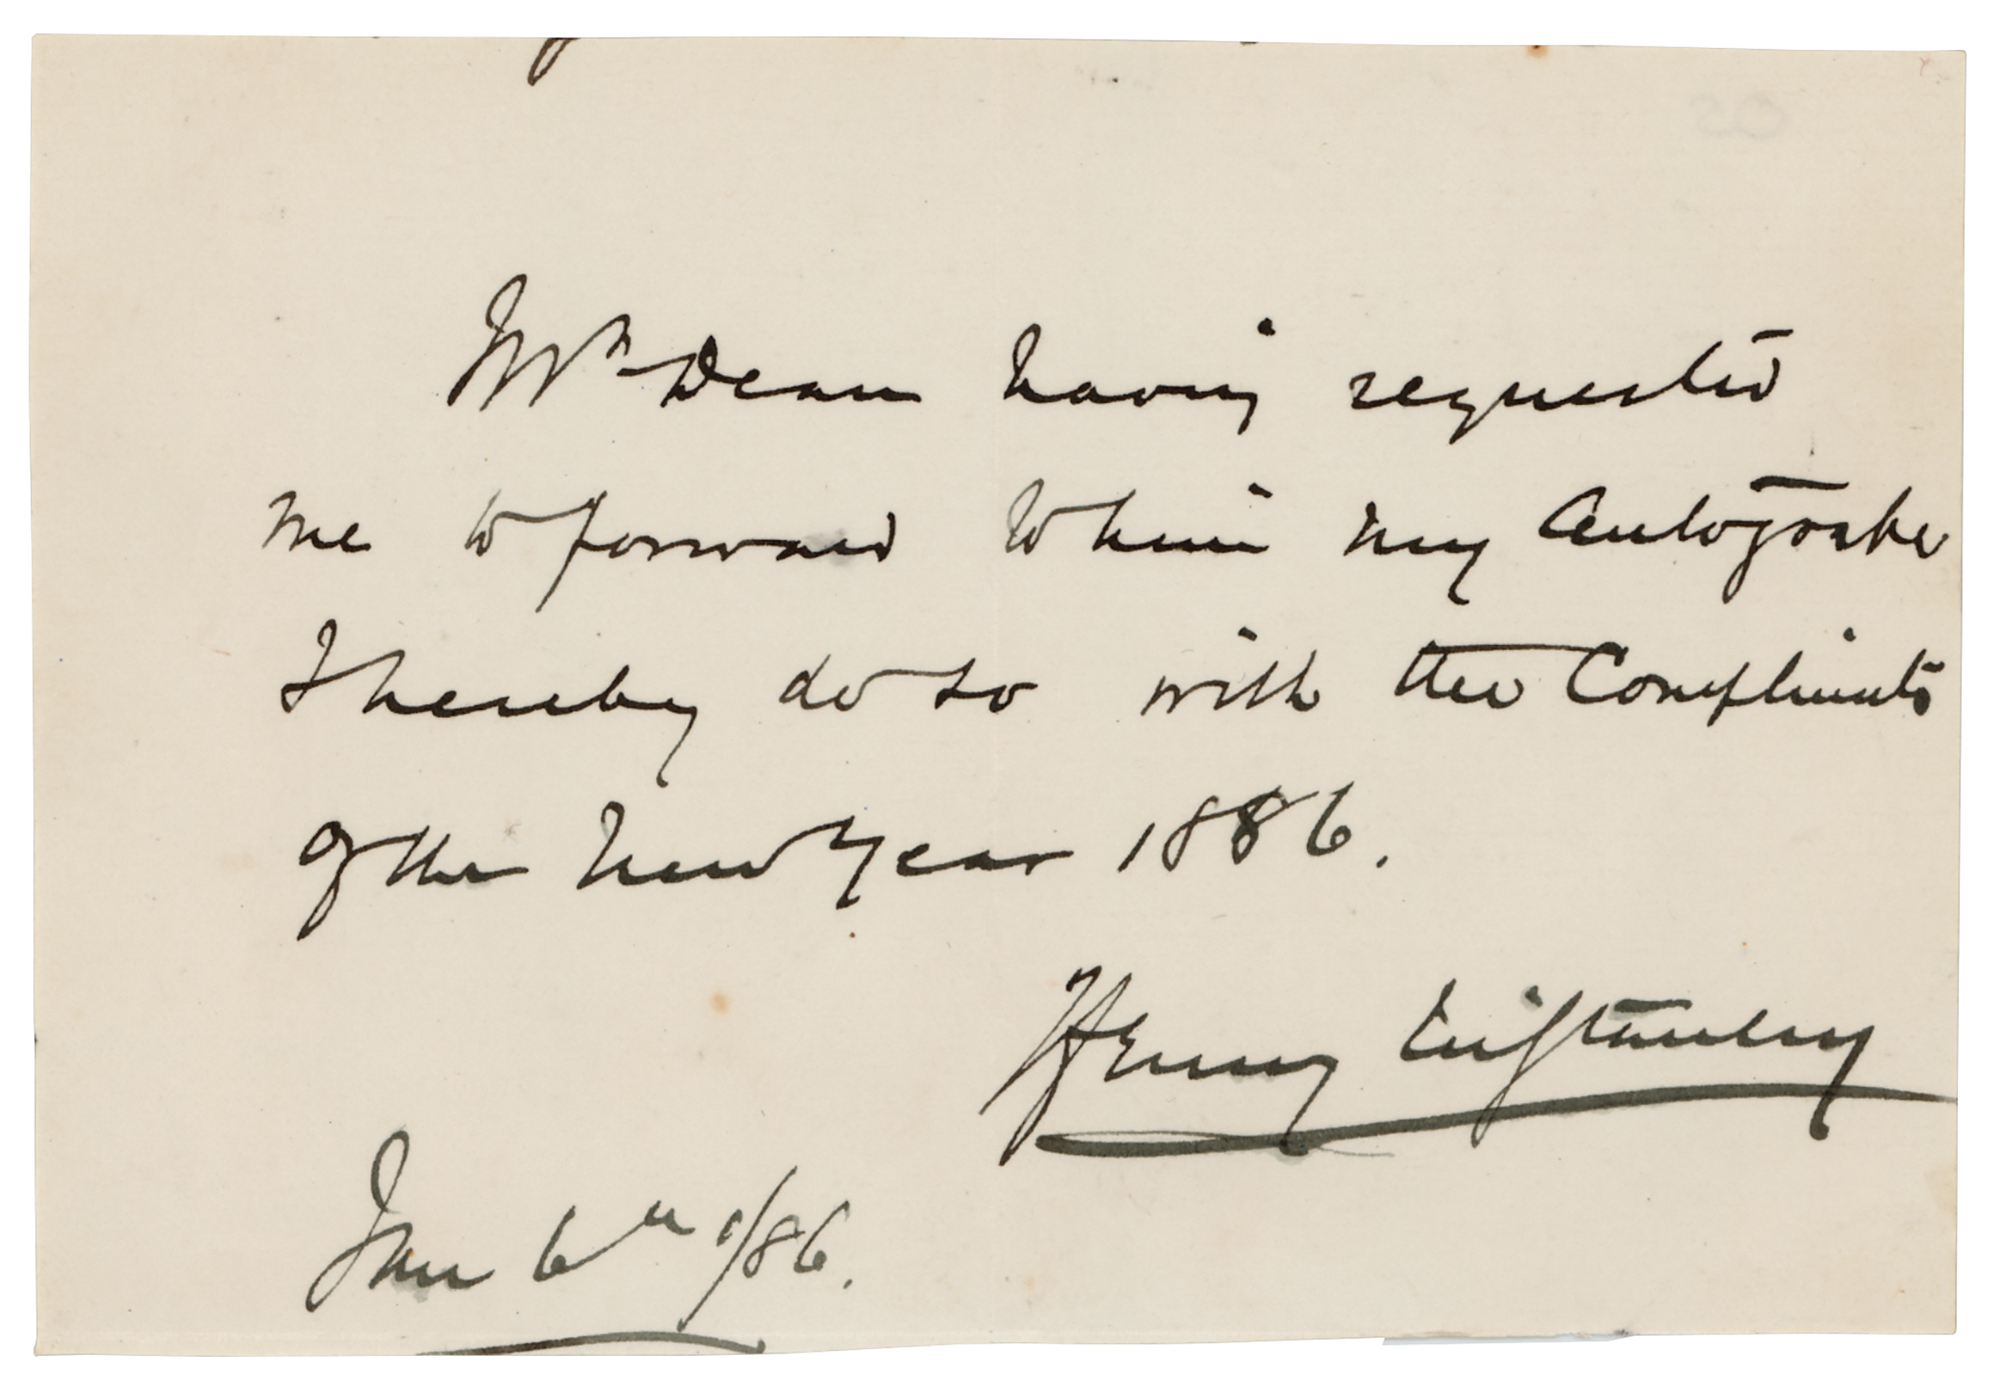 Mr Dean having requested
me to forward to him my Autograph
I hereby do so with the Compliments
of the New Year 1886.
Henry M Stanley
Jan 6th /86.